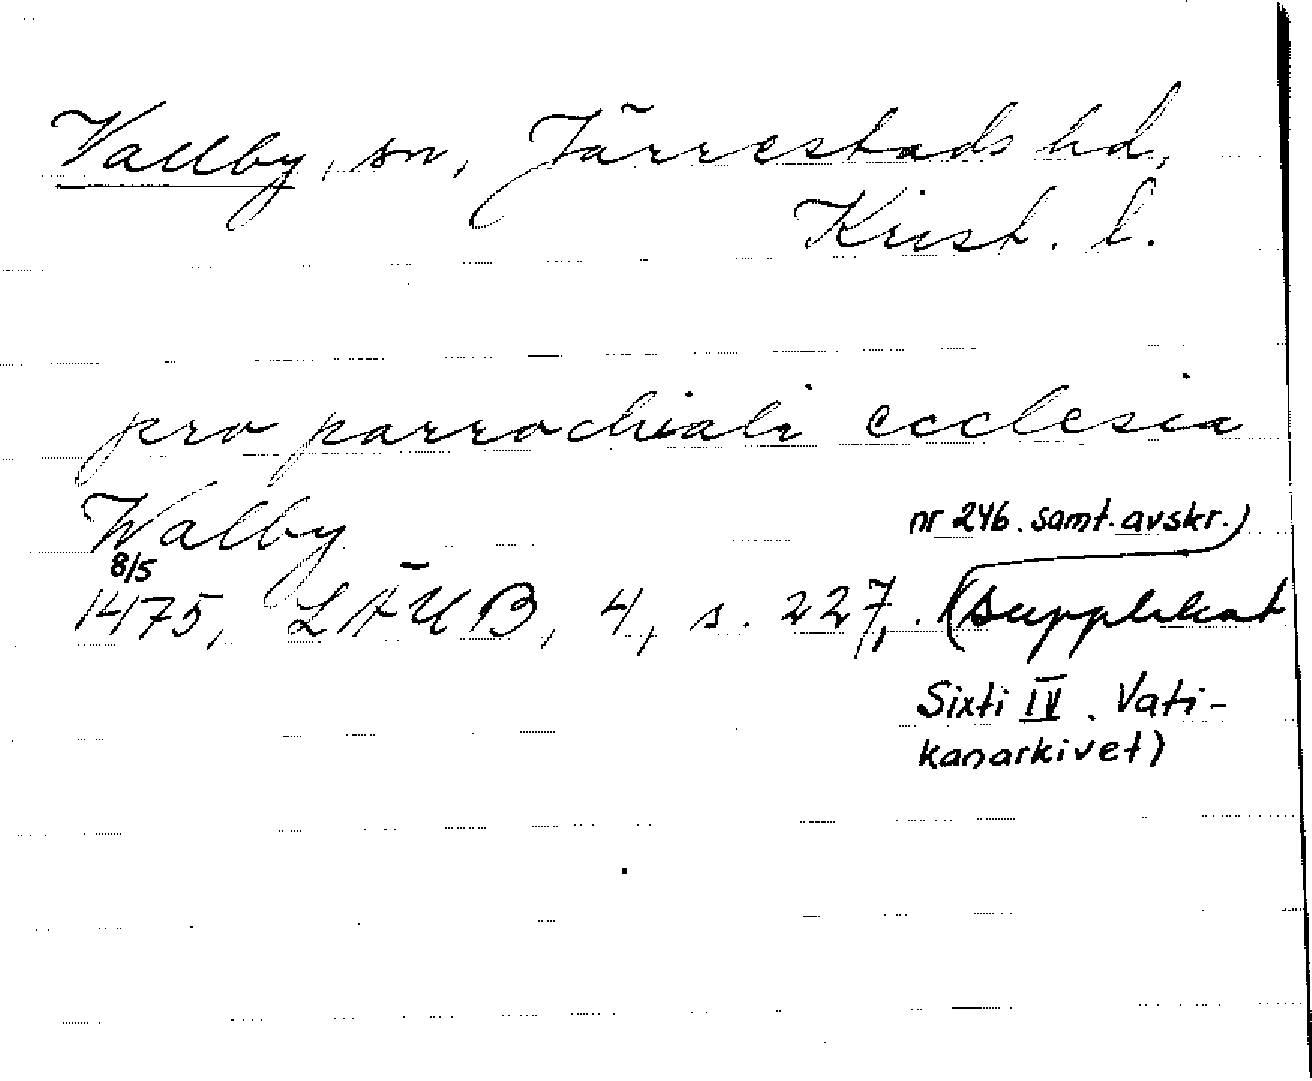 Vallby, sn, Järrestads hd,
Krist. l.
pro parrochiali ecclesia
Walby
8/5
1475, LÄUB, 4, s. 227,. (supplikat
nr 246. samt. avskr.)
Sixti IV. Vati-
kanarkivet)